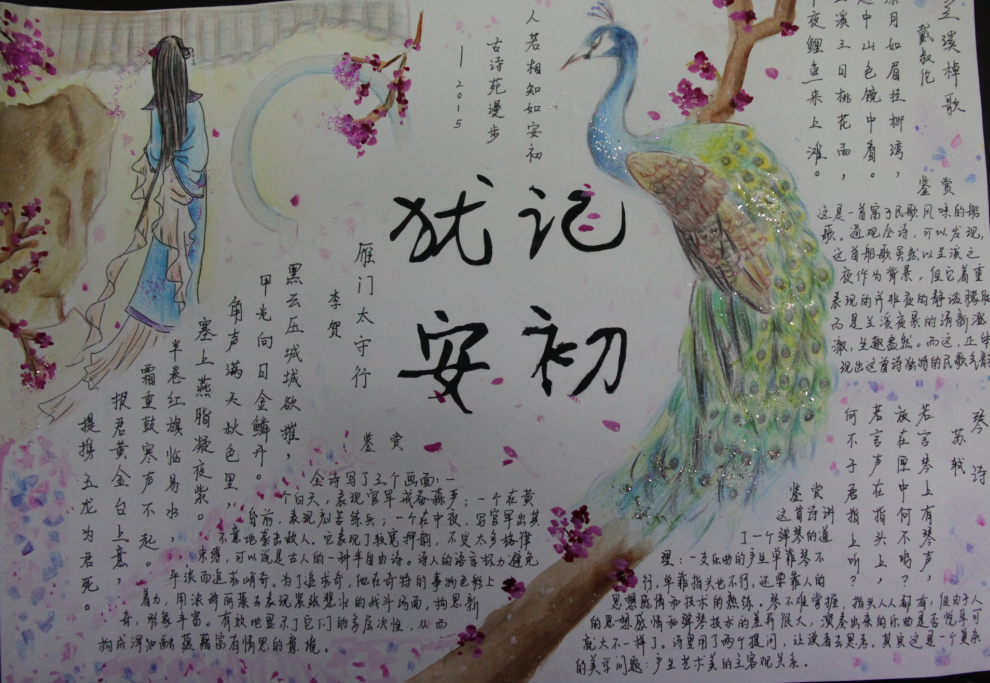 兰溪棹歌
戴叔伦
凉月如眉挂柳湾，
越中山色镜中看。
兰溪三日桃花雨，
半夜鲤鱼来上滩。
鉴赏
这是一首富于民歌风味的船
歌。通观全诗，可以发现，
这首船歌虽然以兰溪之
夜作为背景，但它着重
表现的并非夜的静谧朦胧
而是兰溪夜景的清新澄
澈，生趣盎然。而这，正体
现出这首诗独特的民歌气韵
人若相知如安初
古诗苑漫步
—2015
犹记
安初
雁门太守行
李贺
黑云压城城欲摧，
甲光向日金鳞开。
角声满天秋色里，
塞上燕脂凝夜紫。
半卷红旗临易水，
霜重鼓寒声不起。
报君黄金台上意，
提携玉龙为君死。
鉴赏
全诗写了三个画面：一
个白天，表现官军戒备森严；一个在黄
昏前，表现刻苦练兵；一个在中夜，写官军出其
不意地袭击敌人。它表现了较宽押韵，不受太多格律
束缚，可以说是古人的一种半自由诗。诗人的语言极力避免
平淡而追求峭奇。为了追求奇，他在奇特的事物色彩上
着力，用浓辞丽藻去表现紧张悲壮的战斗场面，构思新
奇，形象丰富。有效地显示了它们的多层次性，从而
构成浑融蕴藉富有情思的意境。
琴诗
苏轼
若言琴上有琴声，
放在匣中何不鸣？
若言声在指头上，
何不于君指上听？
鉴赏
这首诗讲
了一个弹琴的道
理：一支乐曲的产生单靠琴不
行，单靠指头也不行，还要靠人的
思想感情和技术的熟练。琴不难掌握，指头人人都有，但由于人
的思想感情和弹琴技术的差异很大，演奏出来的乐曲是否悦耳可
就大不一样了。诗里用了两个提问，让读者去思考。其实这是一个复杂
的美学问题：产生艺术美的主客观关系。